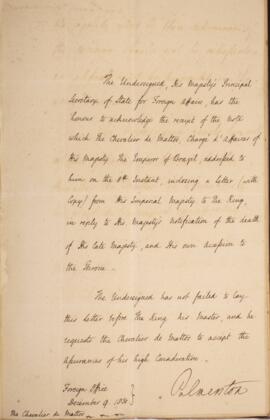 The Undersigned, His Majesty's Principal
Secretary of State for Foreign Affairs, has the
honour to acknowledge the receipt of the Note
which the Chevalier de Mattos, Chargé d'Affaires of
His Majesty The Emperor of Brazil, addressed to
him on the 8th Instant, inclosing a Letter (with
Copy) from His Imperial Majesty to The King,
in reply to His Majesty's notification of the death
of His late Majesty, and His own accession to
the Throne.
The Undersigned has not failed to lay
this Letter before The King his Master, and he
requests the Chevalier de Mattos to accept the
assurances of his high Consideration.
Palmerston
Foreign Office
December 9. 183
The Chevalier de Mattos